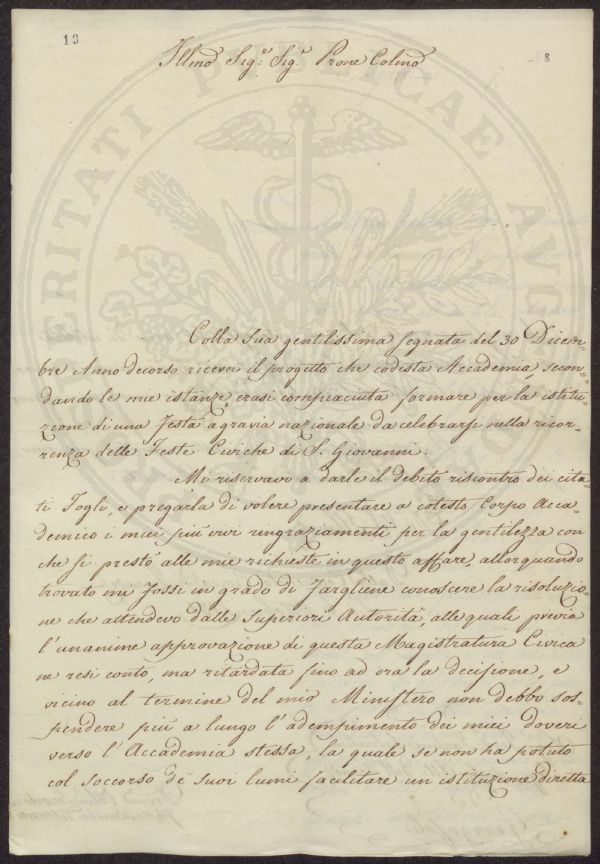 13
8
Illmo Sig.r Sig.r Prone Colmo
Colla sua gentilissima segnata del 30 Dicem-
bre Anno decorso ricevei il progetto che codesta Accademia secon-
dando le mie istanze, erasi compiaciuta formare per la istitu-
zione di una Festa agraria nazionale da celebrarsi nella ricor-
renza delle Feste Civiche di S. Giovanni.
Mi riservavo a darle il debito riscontro dei cita-
ti Fogli, e pregarla di volere presentare a cotesto Corpo Acca-
demico i miei più vivi ringraziamenti per la gentilezza con
che si prestò alle mie richieste in questo affare, allorquando
trovato mi fossi in grado di fargliene conoscere la risoluzio-
ne che attendevo dalle Superiori Autorità, alle quali previa
l'unanime approvazione di questa Magistratura Civica
ne resi conto, ma ritardata fino ad ora la decisione, e
vicino al termine del mio Ministero non debbo sos-
pendere più a lungo l'adempimento dei miei doveri
verso l'Accademia stessa, la quale se non ha potuto
col soccorso de suoi lumi facilitare un istituzione diretta
PROSPERITATI PUBLICAE AUG